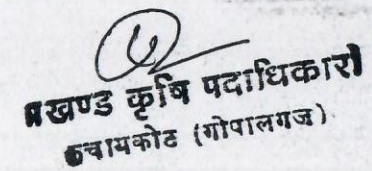 प्रखण्ड कृषि पदाधिकारी
कुचायकोट (गोपालगंज)